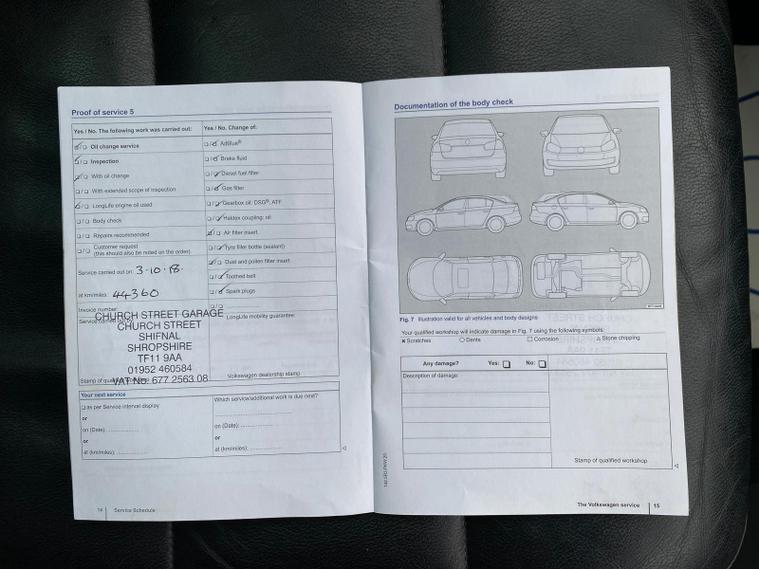 Proof of service 5
Yes / No. The following work was carried out:
Oil change service
Inspection
With oil change
With extended scope of inspection
LongLife engine oil used
Body check
Repairs recommended
Customer request
(this should also be noted on the order)
Service carried out on: 3·10·18·
at km/miles: 44360
Invoice number
CHURCH STREET GARAGE
CHURCH STREET
SHIFNAL
SHROPSHIRE
TF11 9AA
01952 460584
VAT No. 677 2563 08
Stamp of
Yes / No. Change of:
AdBlue®
Brake fluid
Diesel fuel filter
Gas filter
Gearbox oil: DSG®, ATF
Haldex coupling: oil
Air filter insert
Tyre filler bottle (sealant)
Dust and pollen filter insert
Toothed belt
Spark plugs
LongLife mobility guarantee
Volkswagen dealership stamp
Your next service
as per Service interval display
or
on (Date):
or
at (km/miles):
Which service/additional work is due next?
on (Date):
or
at (km/miles):
14 Service Schedule
Documentation of the body check
Fig. 7 Illustration valid for all vehicles and body designs
Your qualified workshop will indicate damage in Fig. 7 using the following symbols:
Scratches Dents Corrosion Stone chipping
Any damage? Yes: No:
Description of damage:
Stamp of qualified workshop
The Volkswagen service 15